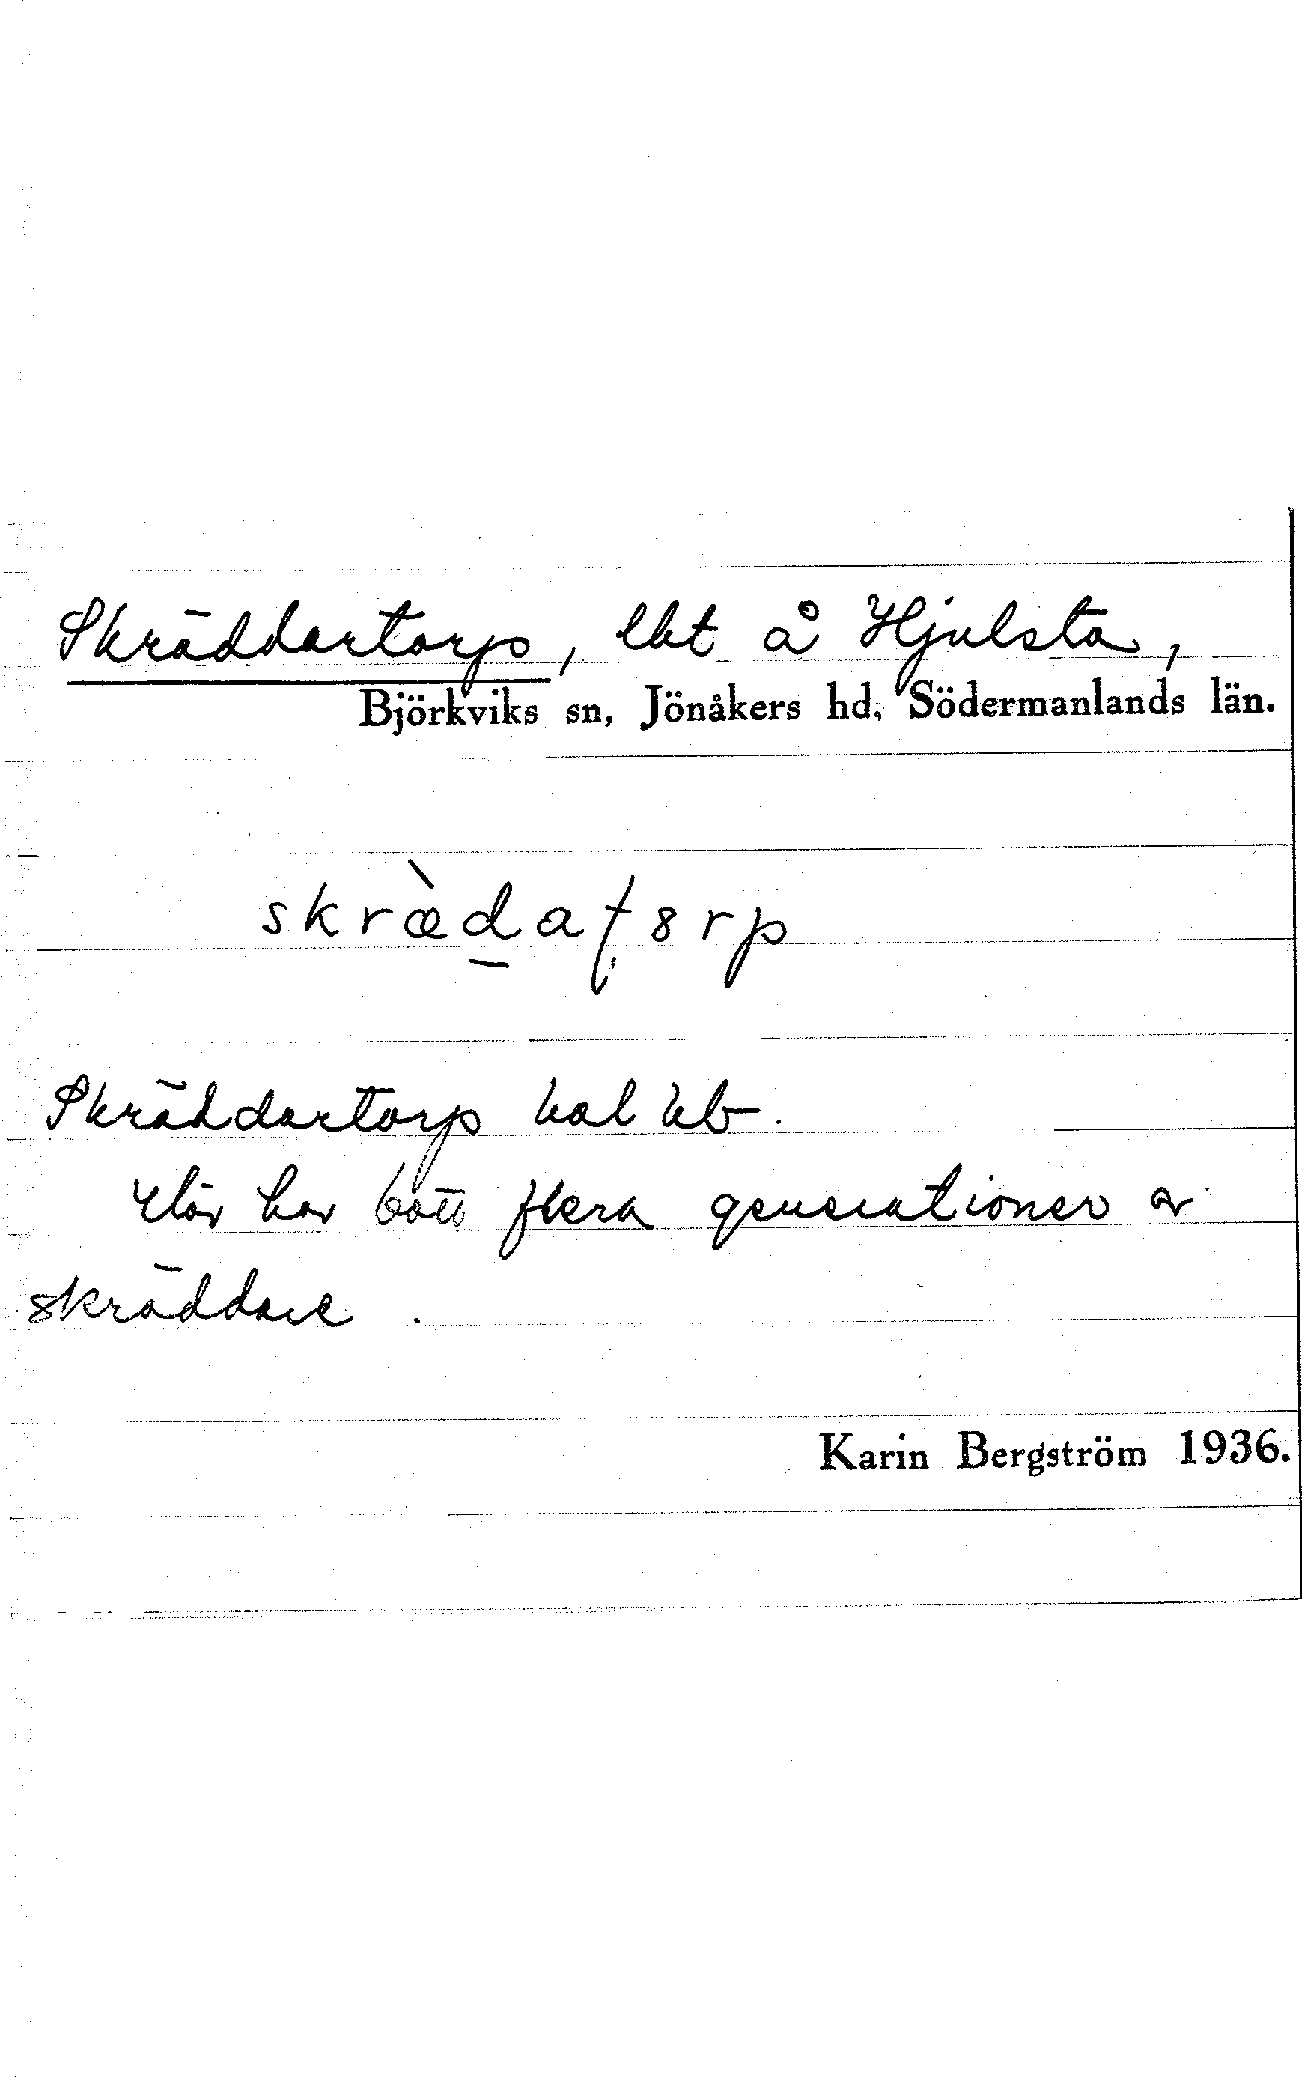 Skräddartorp, lht å Hjulsta,
Björkviks sn, Jönåkers hd, Södermanlands län.
skræ̀da
Skräddartorp hal kb.
Här har bott flera generationer av
skräddare.
Karin Bergström 1936.